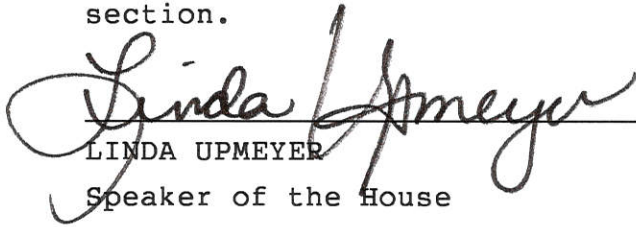 section.
Linda Upmeyer
LINDA UPMEYER
Speaker of the House